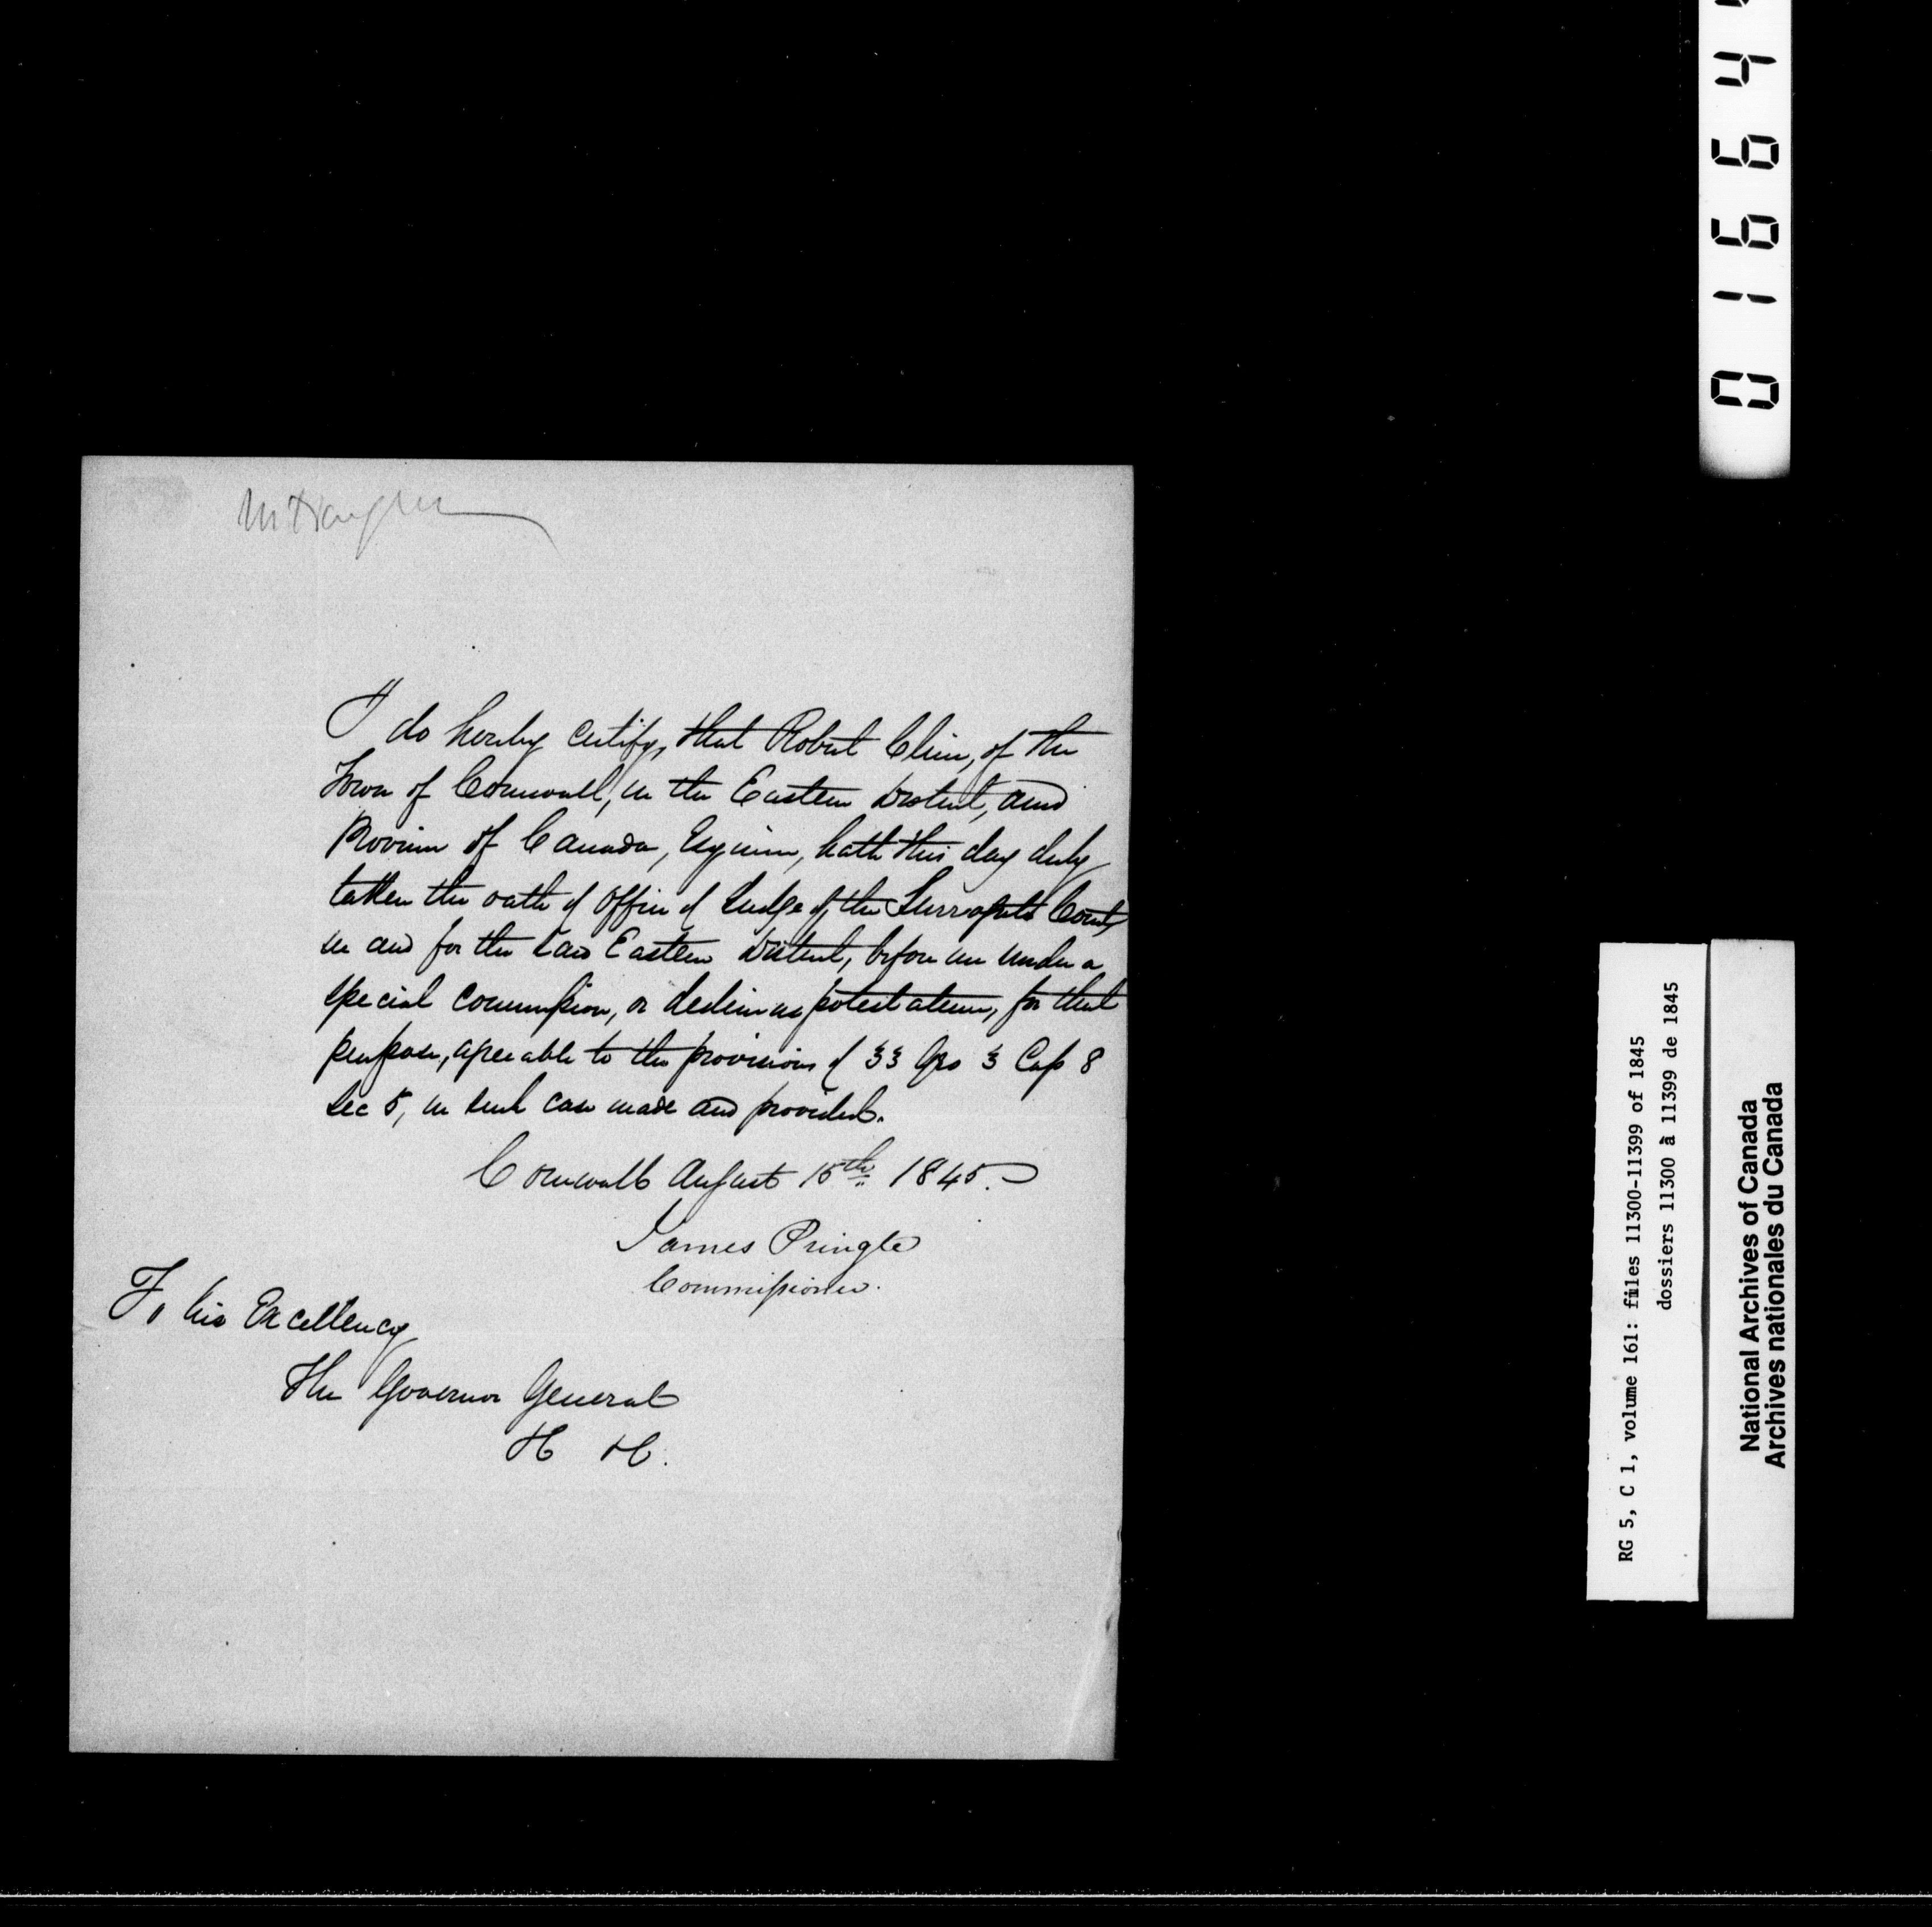 I do hereby certify, that Robert Cline, of the
Town of Cornwall, in the Eastern District, and
Province of Canada, Esquire, hath this day duly
taken the oath of office of Judge of the Surrogate Court
in and for the said Eastern District, before me under a
special commission, or dedimus potestatem, for that
purpose, agreeable to the provisions of 33 Geo 3 Cap 8
Sec 5, in such case made and provided.
Cornwall August 15th 1845.
James Pringle
Commissioner.
To his Excellency
The Governor General
&c &c.
0 1 6 6 4
RG 5, C 1, volume 161: files 11300-11399 of 1845
dossiers 11300 à 11399 de 1845
National Archives of Canada
Archives nationales du Canada